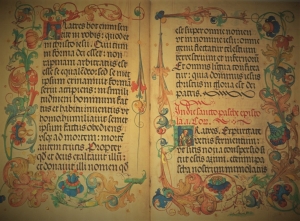 Fratres hoc enim sen
tite in vobis: quod et
in cristo iesu. Qui cum
in forma dei esset: non
rapinam arbitratus est
esse se equalem deo: sed semet
ipsum exinanivit formam
servi accipiens: in simili
tudinem hominum fact
us et habitu inventus ut
homo humiliavit semet
ipsum factus obediens
usque ad mortem: mortem
autem crucis. Propter
qd et deus exaltavit illum: et
donavit illi nomen qd
est super omne nomen
ut in nomine iesu: omne
genu flectatur celestium
terrestrium et infernorum
Et omnis lingua confitea
tur: quia dominus iesus
christus in gloria est dei
patris.
In die sancto pasce epistola
ad Cor.
Fratres. Expurgate
vetus fermentum: ut
sitis nova conspersio sic
ut estis azimi. etenim pas
cha nostrum immolatus